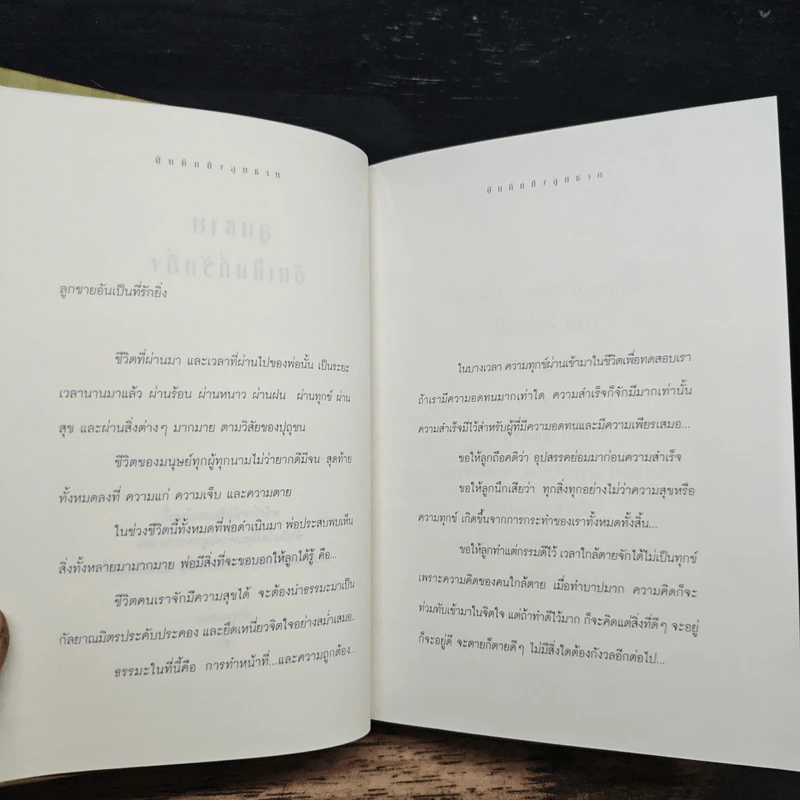 บันทึกถึงลูกชาย
ลูกชายอันเป็นที่รักยิ่ง
ชีวิตที่ผ่านมา และเวลาที่ผ่านไปของพ่อนั้น เป็นระยะ
เวลานานมาแล้ว ผ่านร้อน ผ่านหนาว ผ่านฝน ผ่านทุกข์ ผ่าน
สุข และผ่านสิ่งต่างๆ มากมาย ตามวิสัยของปุถุชน
ชีวิตของมนุษย์ทุกผู้ทุกนามไม่ว่ายากดีมีจน สุดท้าย
ทั้งหมดลงที่ ความแก่ ความเจ็บ และความตาย
ในช่วงชีวิตนี้ทั้งหมดที่พ่อดำเนินมา พ่อประสบพบเห็น
สิ่งทั้งหลายมามากมาย พ่อมีสิ่งที่จะขอบอกให้ลูกได้รู้ คือ...
ชีวิตคนเราจักมีความสุขได้ จะต้องนำธรรมะมาเป็น
กัลยาณมิตรประคับประคอง และยึดเหนี่ยวจิตใจอย่างสม่ำเสมอ...
ธรรมะในที่นี้คือ การทำหน้าที่...และความถูกต้อง...
บันทึกถึงลูกชาย
ในบางเวลา ความทุกข์ผ่านเข้ามาในชีวิตเพื่อทดสอบเรา
ถ้าเรามีความอดทนมากเท่าใด ความสำเร็จก็จักมีมากเท่านั้น
ความสำเร็จมีไว้สำหรับผู้ที่มีความอดทนและมีความเพียรเสมอ...
ขอให้ลูกถือคติว่า อุปสรรคย่อมมาก่อนความสำเร็จ
ขอให้ลูกนึกเสียว่า ทุกสิ่งทุกอย่างไม่ว่าความสุขหรือ
ความทุกข์ เกิดขึ้นจากการกระทำของเราทั้งหมดทั้งสิ้น...
ขอให้ลูกทำแต่กรรมดีไว้ เวลาใกล้ตายจักได้ไม่เป็นทุกข์
เพราะความคิดของคนใกล้ตาย เมื่อทำบาปมาก ความคิดก็จะ
ท่วมทับเข้ามาในจิตใจ แต่ถ้าทำดีไว้มาก ก็จะคิดแต่สิ่งที่ดีๆ จะอยู่
ก็จะอยู่ดี จะตายก็ตายดีๆ ไม่มีสิ่งใดต้องกังวลอีกต่อไป...